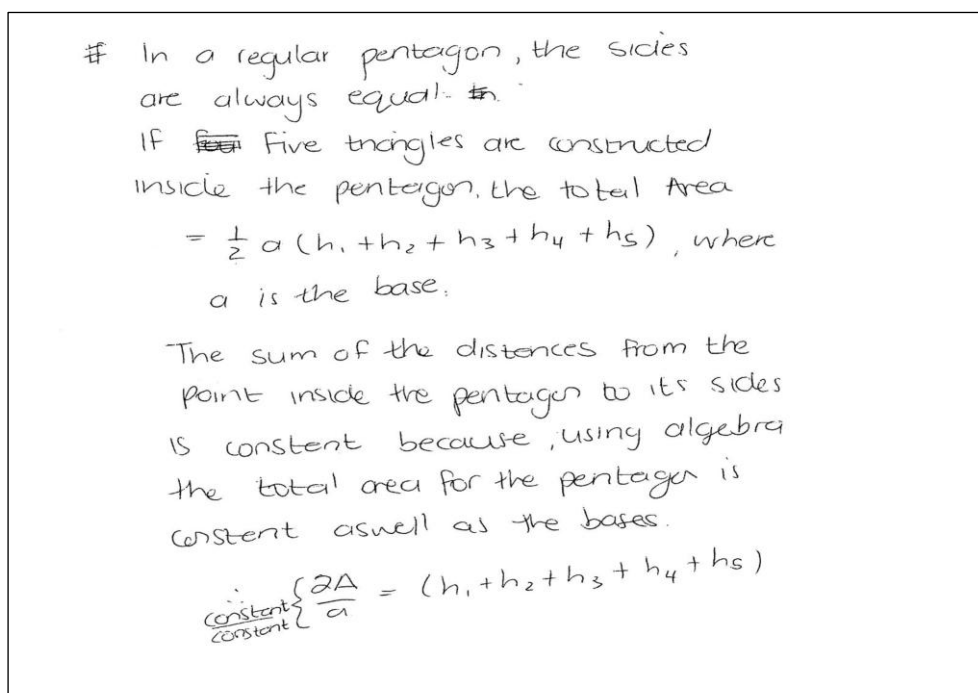 # In a regular pentagon, the sides
are always equal.
If five triangles are constructed
inside the pentagon, the total Area
= 1/2 a (h₁ + h₂ + h₃ + h₄ + h₅), where
a is the base.
The sum of the distances from the
point inside the pentagon to its sides
is constant because, using algebra
the total area for the pentagon is
constant aswell as the bases.
∴ constant/constant { 2A/a = (h₁ + h₂ + h₃ + h₄ + h₅)